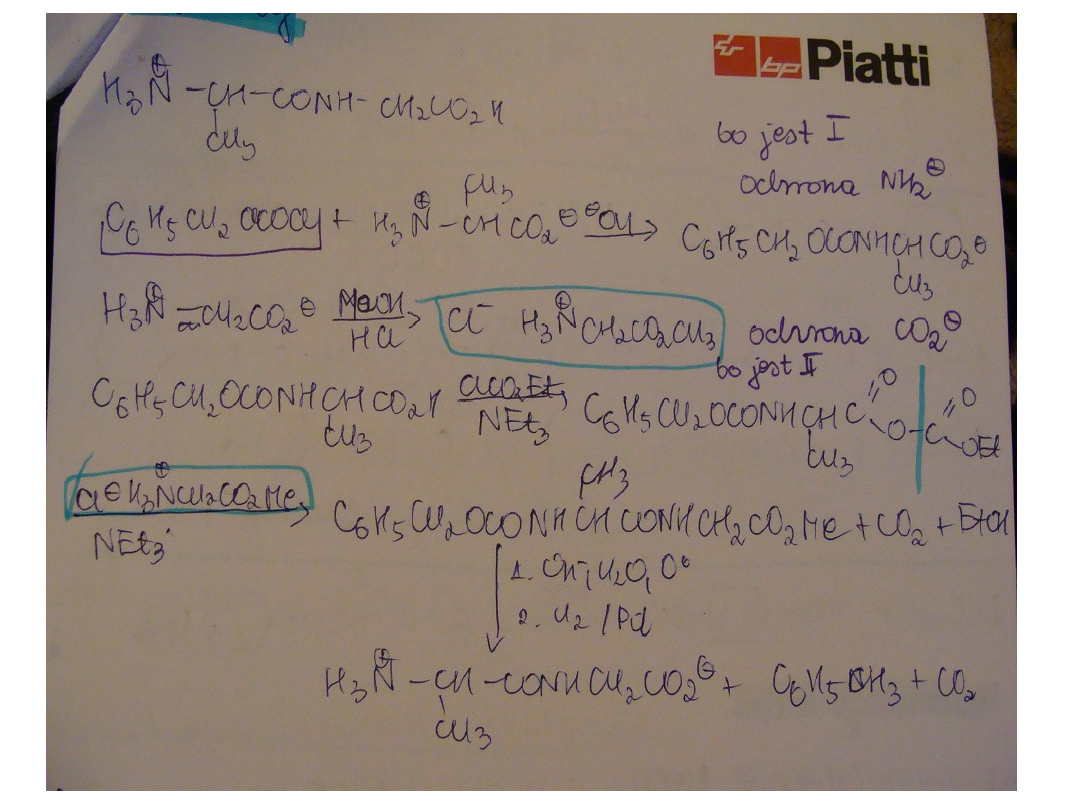 Piatti
H₃N⊕ – CH – CONH – CH₂CO₂H
CH₃
bo jest I
ochrona NH₂⊕
CH₃
C₆H₅CH₂OCOCl + H₃N⊕ – CHCO₂⊖ ⊖OH → C₆H₅CH₂OCONHCHCO₂⊖
CH₃
H₃N⊕ – CH₂CO₂⊖ MeOH / HCl → Cl⁻ H₃N⊕CH₂CO₂CH₃ ochrona CO₂⊖
bo jest II
C₆H₅CH₂OCONHCHCO₂H ClCO₂Et / NEt₃ → C₆H₅CH₂OCONHCHC=O–O–C=O OEt
CH₃ CH₃
Cl⊖H₃N⊕CH₂CO₂Me
NEt₃
CH₃
→ C₆H₅CH₂OCONHCHCONHCH₂CO₂Me + CO₂ + EtOH
1. OH⁻, H₂O, 0°
2. H₂ / Pd
H₃N⊕ – CH – CONHCH₂CO₂⊖ + C₆H₅CH₃ + CO₂
CH₃